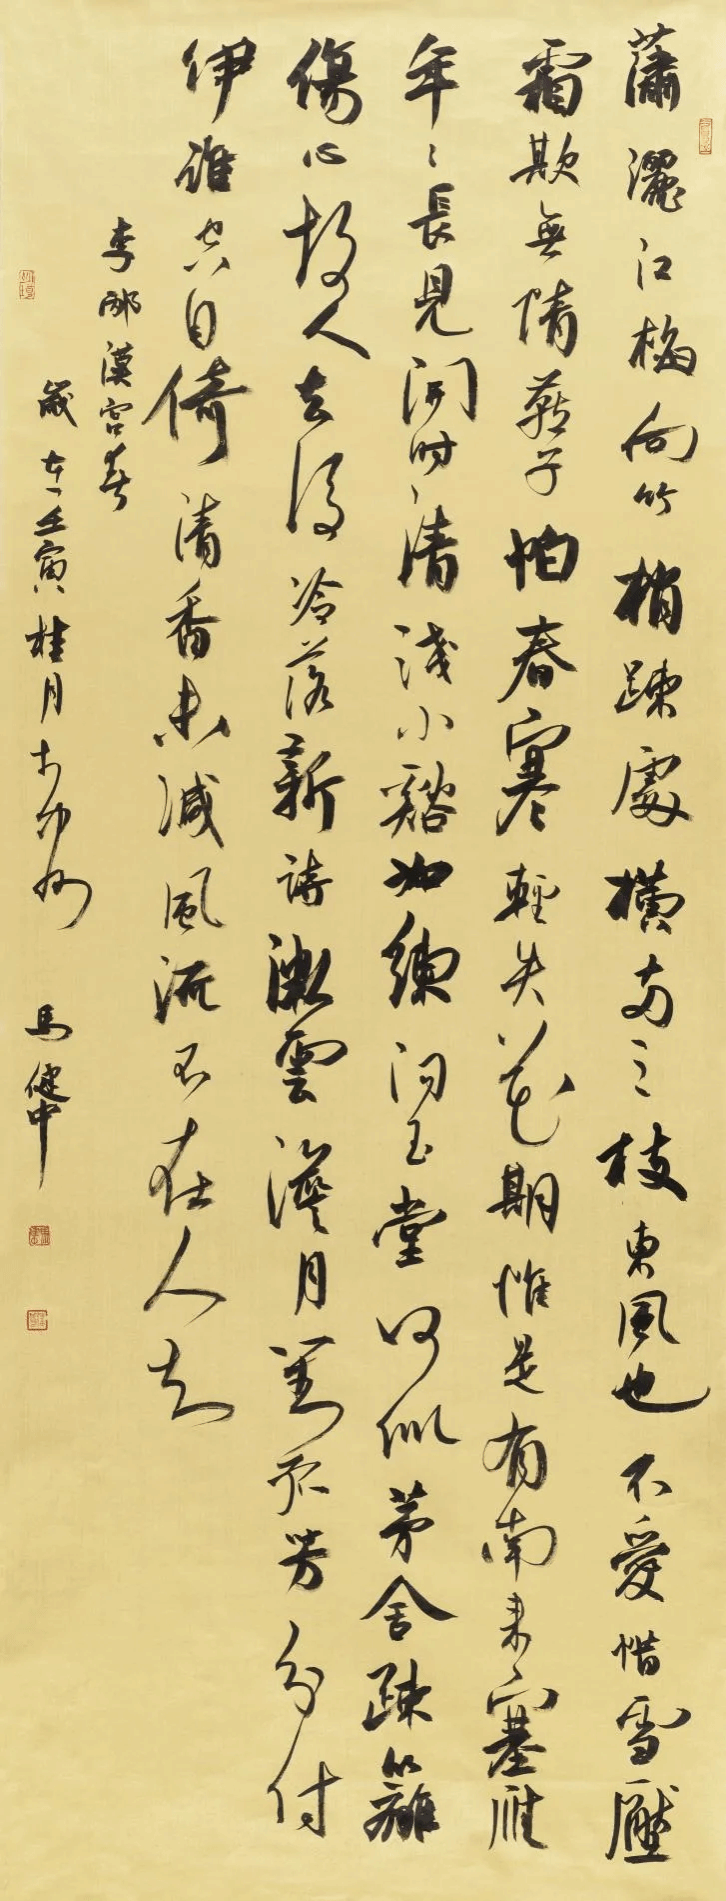 蕭灑江梅向竹梢踈處橫兩三枝東風也不愛惜雪壓
霜欺無情燕子怕春寒輕失花期惟是有南來塞雁
年〻長見開時清淺小谿如練問玉堂何似茅舍踈籬
傷心故人去後冷落新詩微雲淡月對孤芳分付
伊誰空自倚清香未減風流不在人知
李邴漢宮春
歲在壬寅桂月於 馬健中